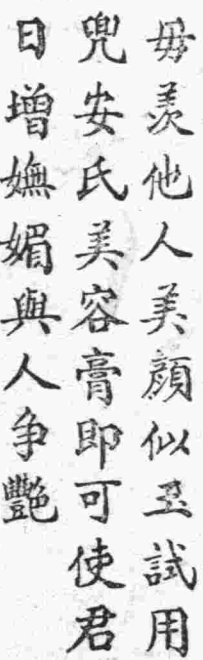 毋羨他人美顔似玉試用
兜安氏美容膏即可使君
日增嫵媚與人争艷